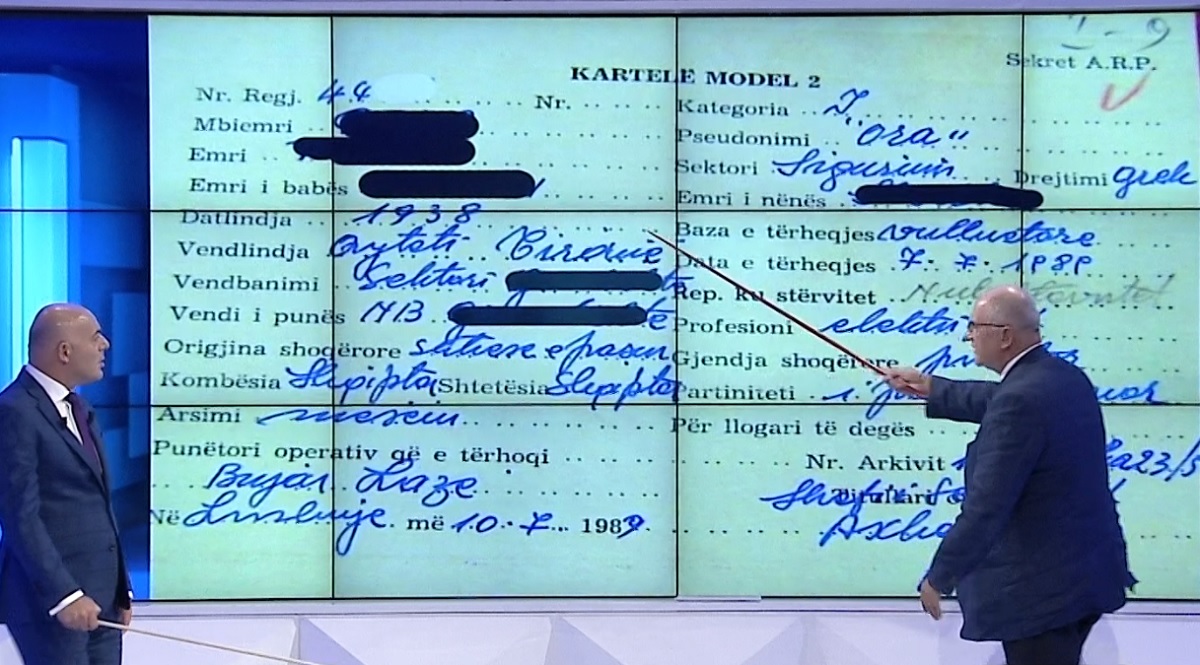 I-9
Sekret A.R.P.
KARTELË MODEL 2
Nr. Regj. 44 Nr.
Mbiemri
Emri
Emri i babës
Datlindja 1938
Vendlindja Qyteti
Vendbanimi Sektori
Vendi i punës
Origjina shoqërore
Kombësia Shqiptar Shtetësia Shqiptar
Arsimi mesëm
Punëtori operativ që e tërhoqi
Bujar Laze
Në Lushnje më 10.7. 1989
Kategoria I
Pseudonimi "Ora"
Sektori Sigurimin Drejtimi grek
Emri i nënës
Baza e tërheqjes vullnetare
Data e tërheqjes 7.7.1989
Rep. ku stërvitet
Profesioni elektri
Gjendja shoqërore
Partiniteti i
Për llogari të degës
Nr. Arkivit